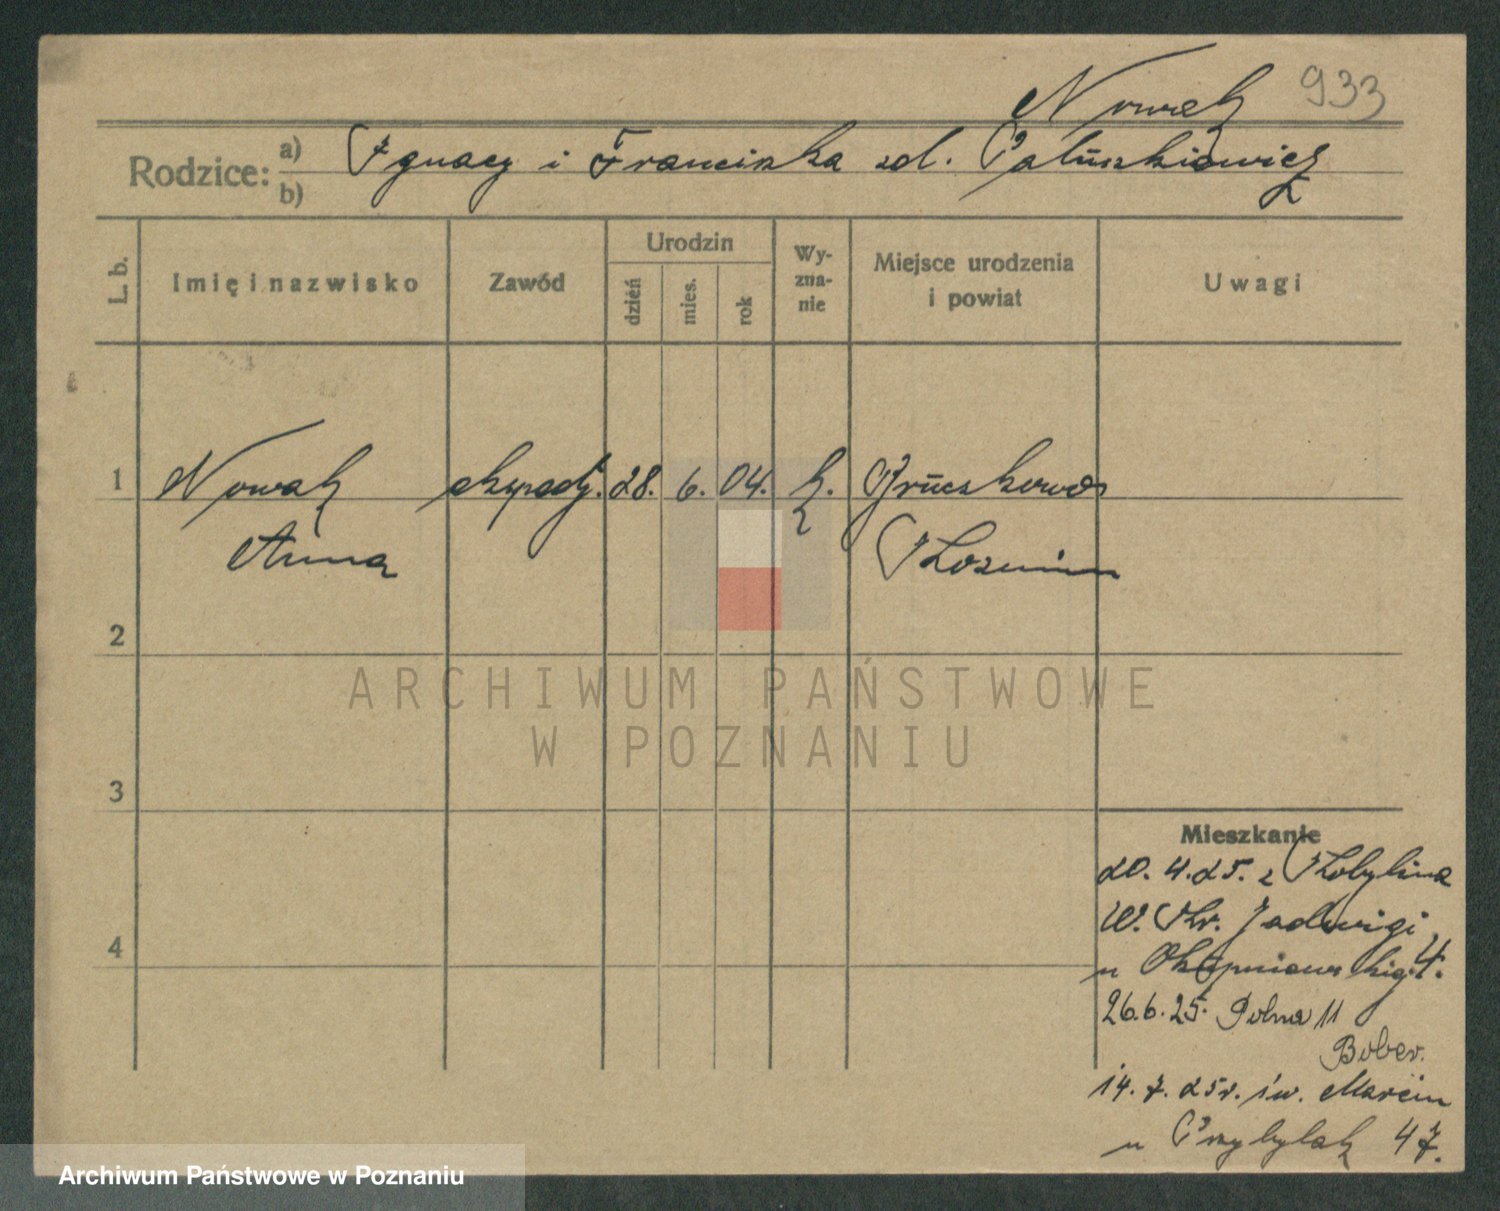 Nowak 933
Rodzice: a) Ignacy i Franciszka zd. Paluszkiewicz
b)
L. b.
Imię i nazwisko
Zawód
Urodzin
dzień
mies.
rok
Wy-
zna-
nie
Miejsce urodzenia
i powiat
Uwagi
1 Nowak ekspedj. 28. 6. 04. k. Bruczkowo
Anna Koźmin
2
ARCHIWUM PAŃSTWOWE
W POZNANIU
3
Mieszkanie
20.4.25. z Kobylina
W. Kr. Jadwigi
4
u 4.
26.6.25. Polna 11
Bober.
14.7.25r. św. Marcin
u Przybylak 47.
Archiwum Państwowe w Poznaniu